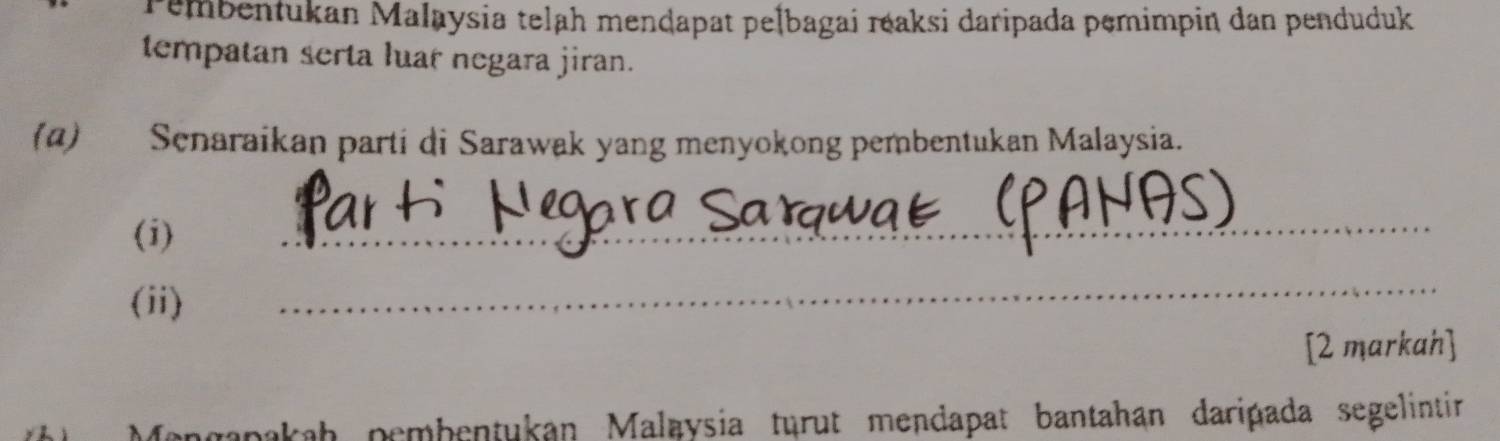 Pembentukan Malaysia telah mendapat pelbagai reaksi daripada pemimpin dan penduduk
tempatan serta luar negara jiran.
(a) Senaraikan parti di Sarawak yang menyokong pembentukan Malaysia.
(i) Parti Negara Sarawak (PANAS)
(ii)
[2 markah]
(b) Mengapakah pembentukan Malaysia turut mendapat bantahan daripada segelintir